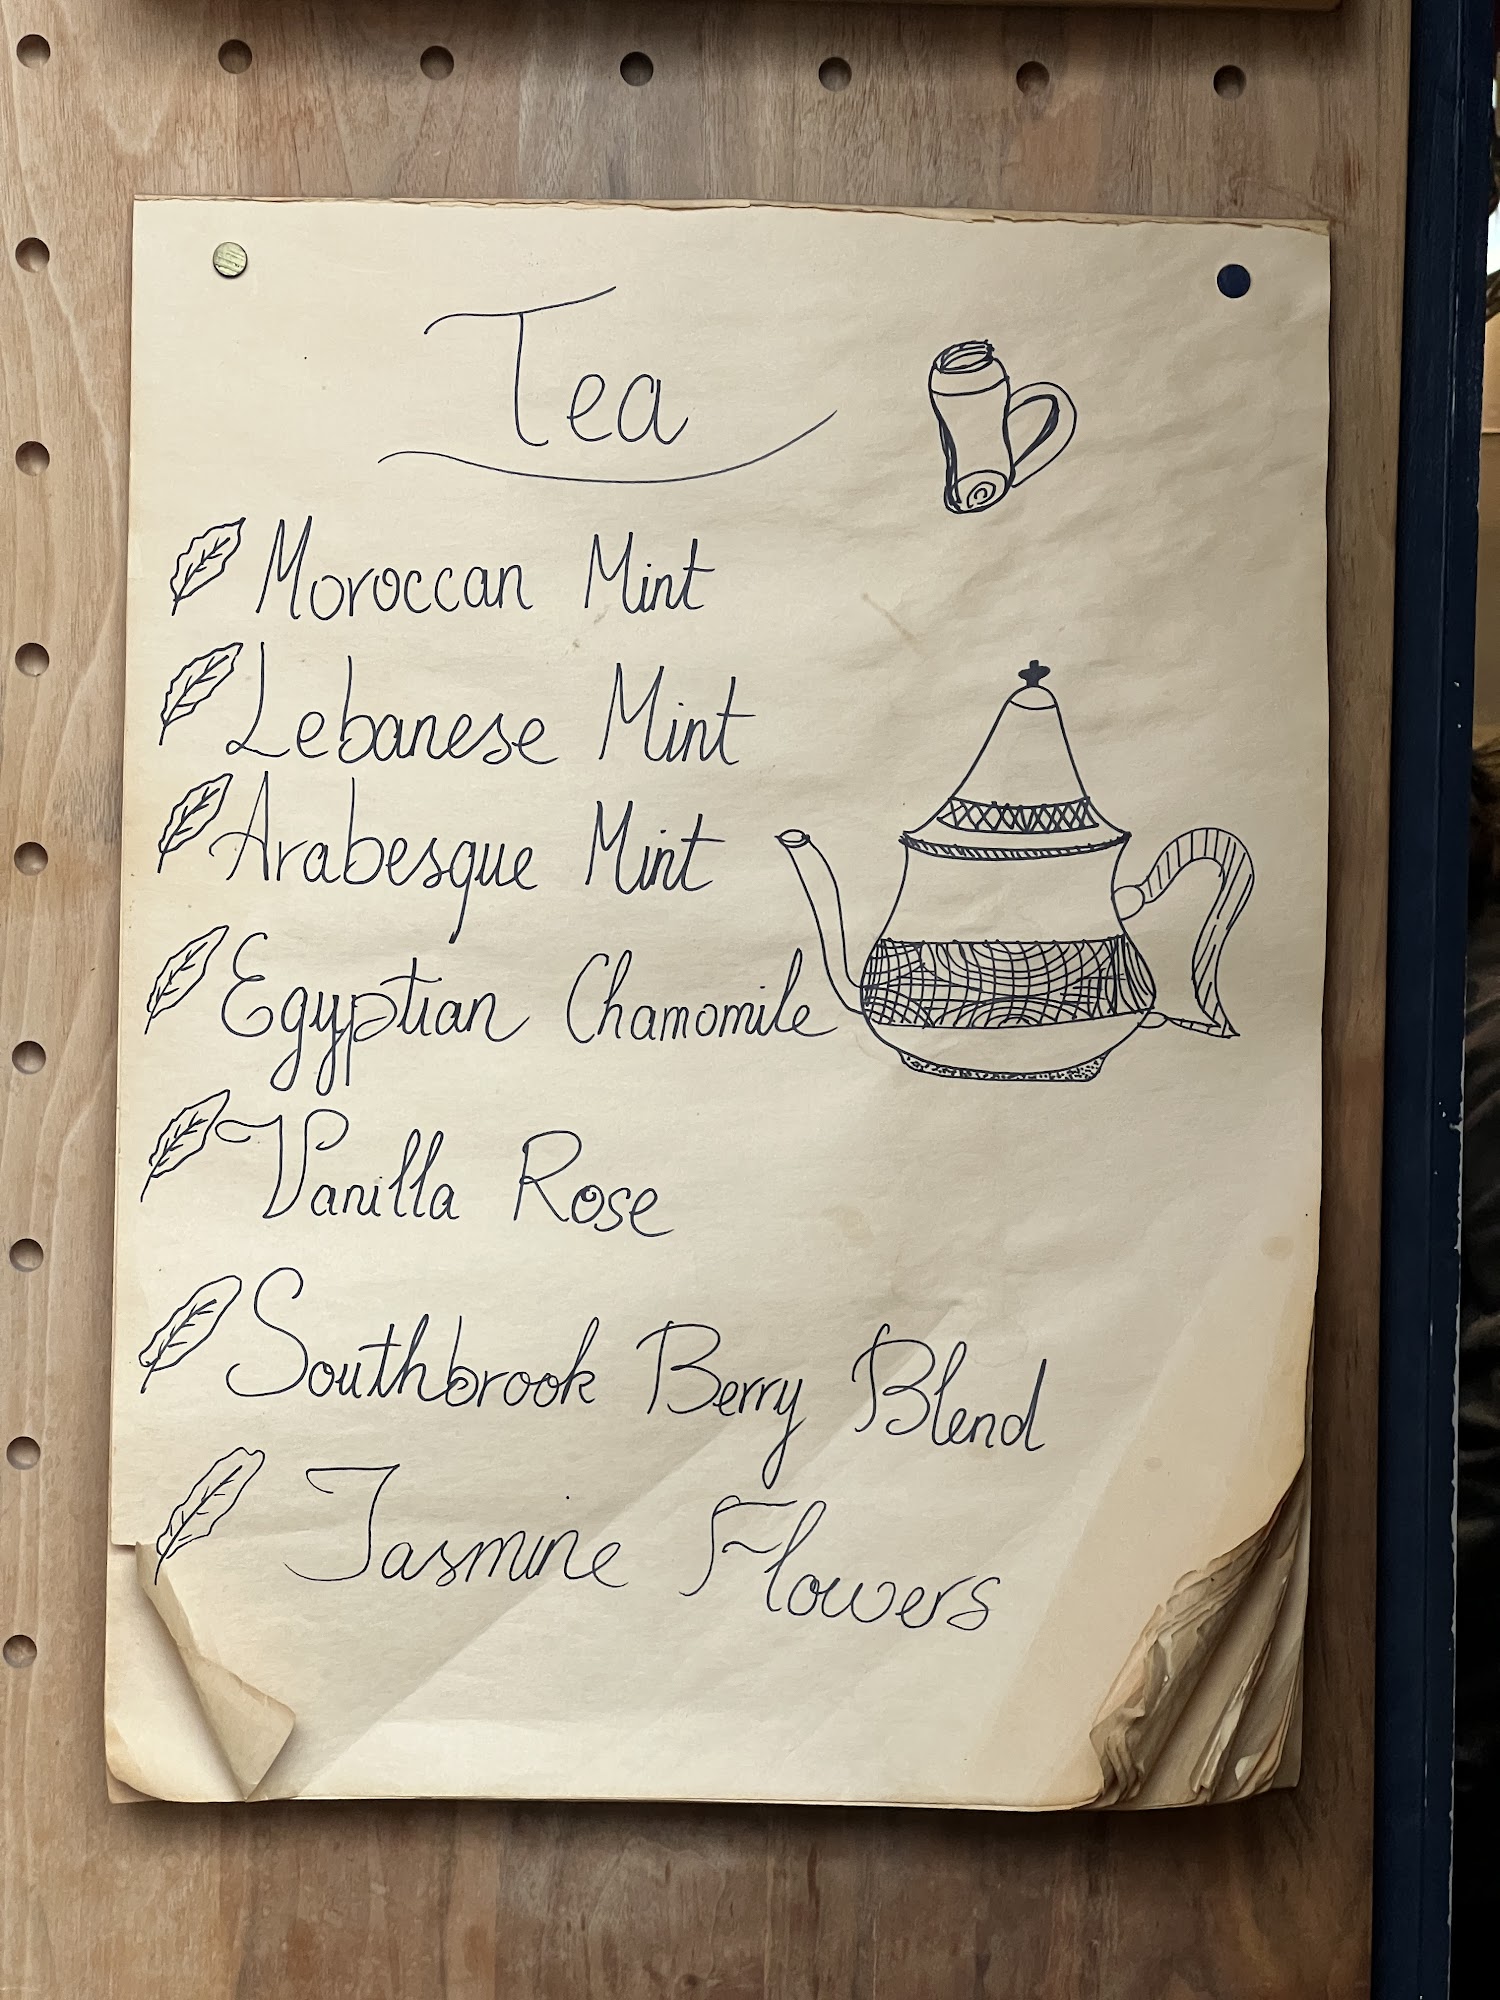 Tea
Moroccan Mint
Lebanese Mint
Arabesque Mint
Egyptian Chamomile
Vanilla Rose
Southbrook Berry Blend
Jasmine Flowers